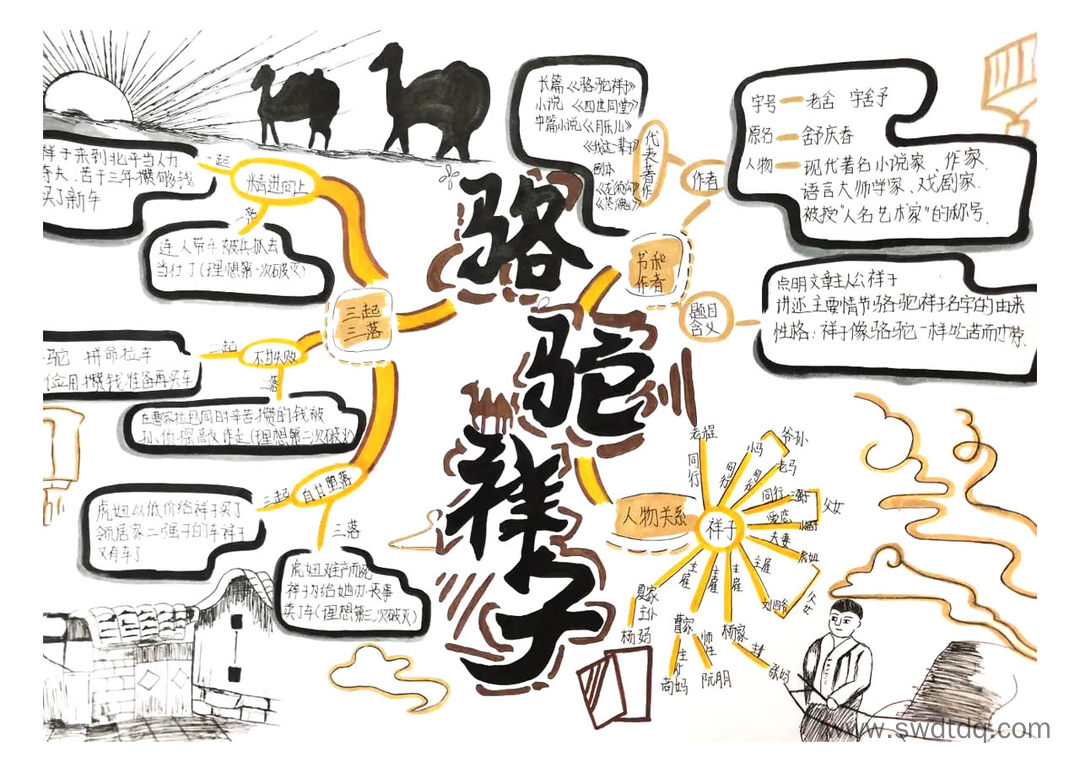 骆
驼
祥
子
三起
三落
精进向上
一起
祥子来到北平当人力
车夫、苦干三年攒够钱
买了新车
一落
连人带车被兵抓去
当壮丁(理想第一次破灭)
不甘失败
二起
驼 拼命拉车
省吃俭用攒钱准备再买车
二落
在曹家拉包同时辛苦攒的钱被
孙侦探敲诈走(理想第二次破灭)
自甘堕落
三起
虎妞以低价给祥子买了
邻居家二强子的车祥子
又有车了
三落
虎妞难产而死
祥子为给她办丧事
卖了车(理想第三次破灭)
书和
作者
作者
代表著作
长篇《骆驼祥子》
小说《四世同堂》
中篇小说《月牙儿》
《我这一辈子》
剧本
《龙须沟》
《茶馆》
字号 老舍 字舍予
原名 舒庆春
人物 现代著名小说家、作家
语言大师学家、戏剧家
被授"人名艺术家"的称号.
题目
含义
点明文章主人公祥子
讲述主要情节骆驼祥子名字的由来
性格:祥子像骆驼一样吃苦而耐劳.
人物关系
祥子
同行
老程
同行
小马
爷孙
老马
同行
父女
夫妻
虎妞
主雇
刘四爷
父女
主雇
杨家
张妈
主雇
曹家
师生
阮明
主仆
高妈
主雇
夏家
主仆
杨妈
www.swdtdq.com